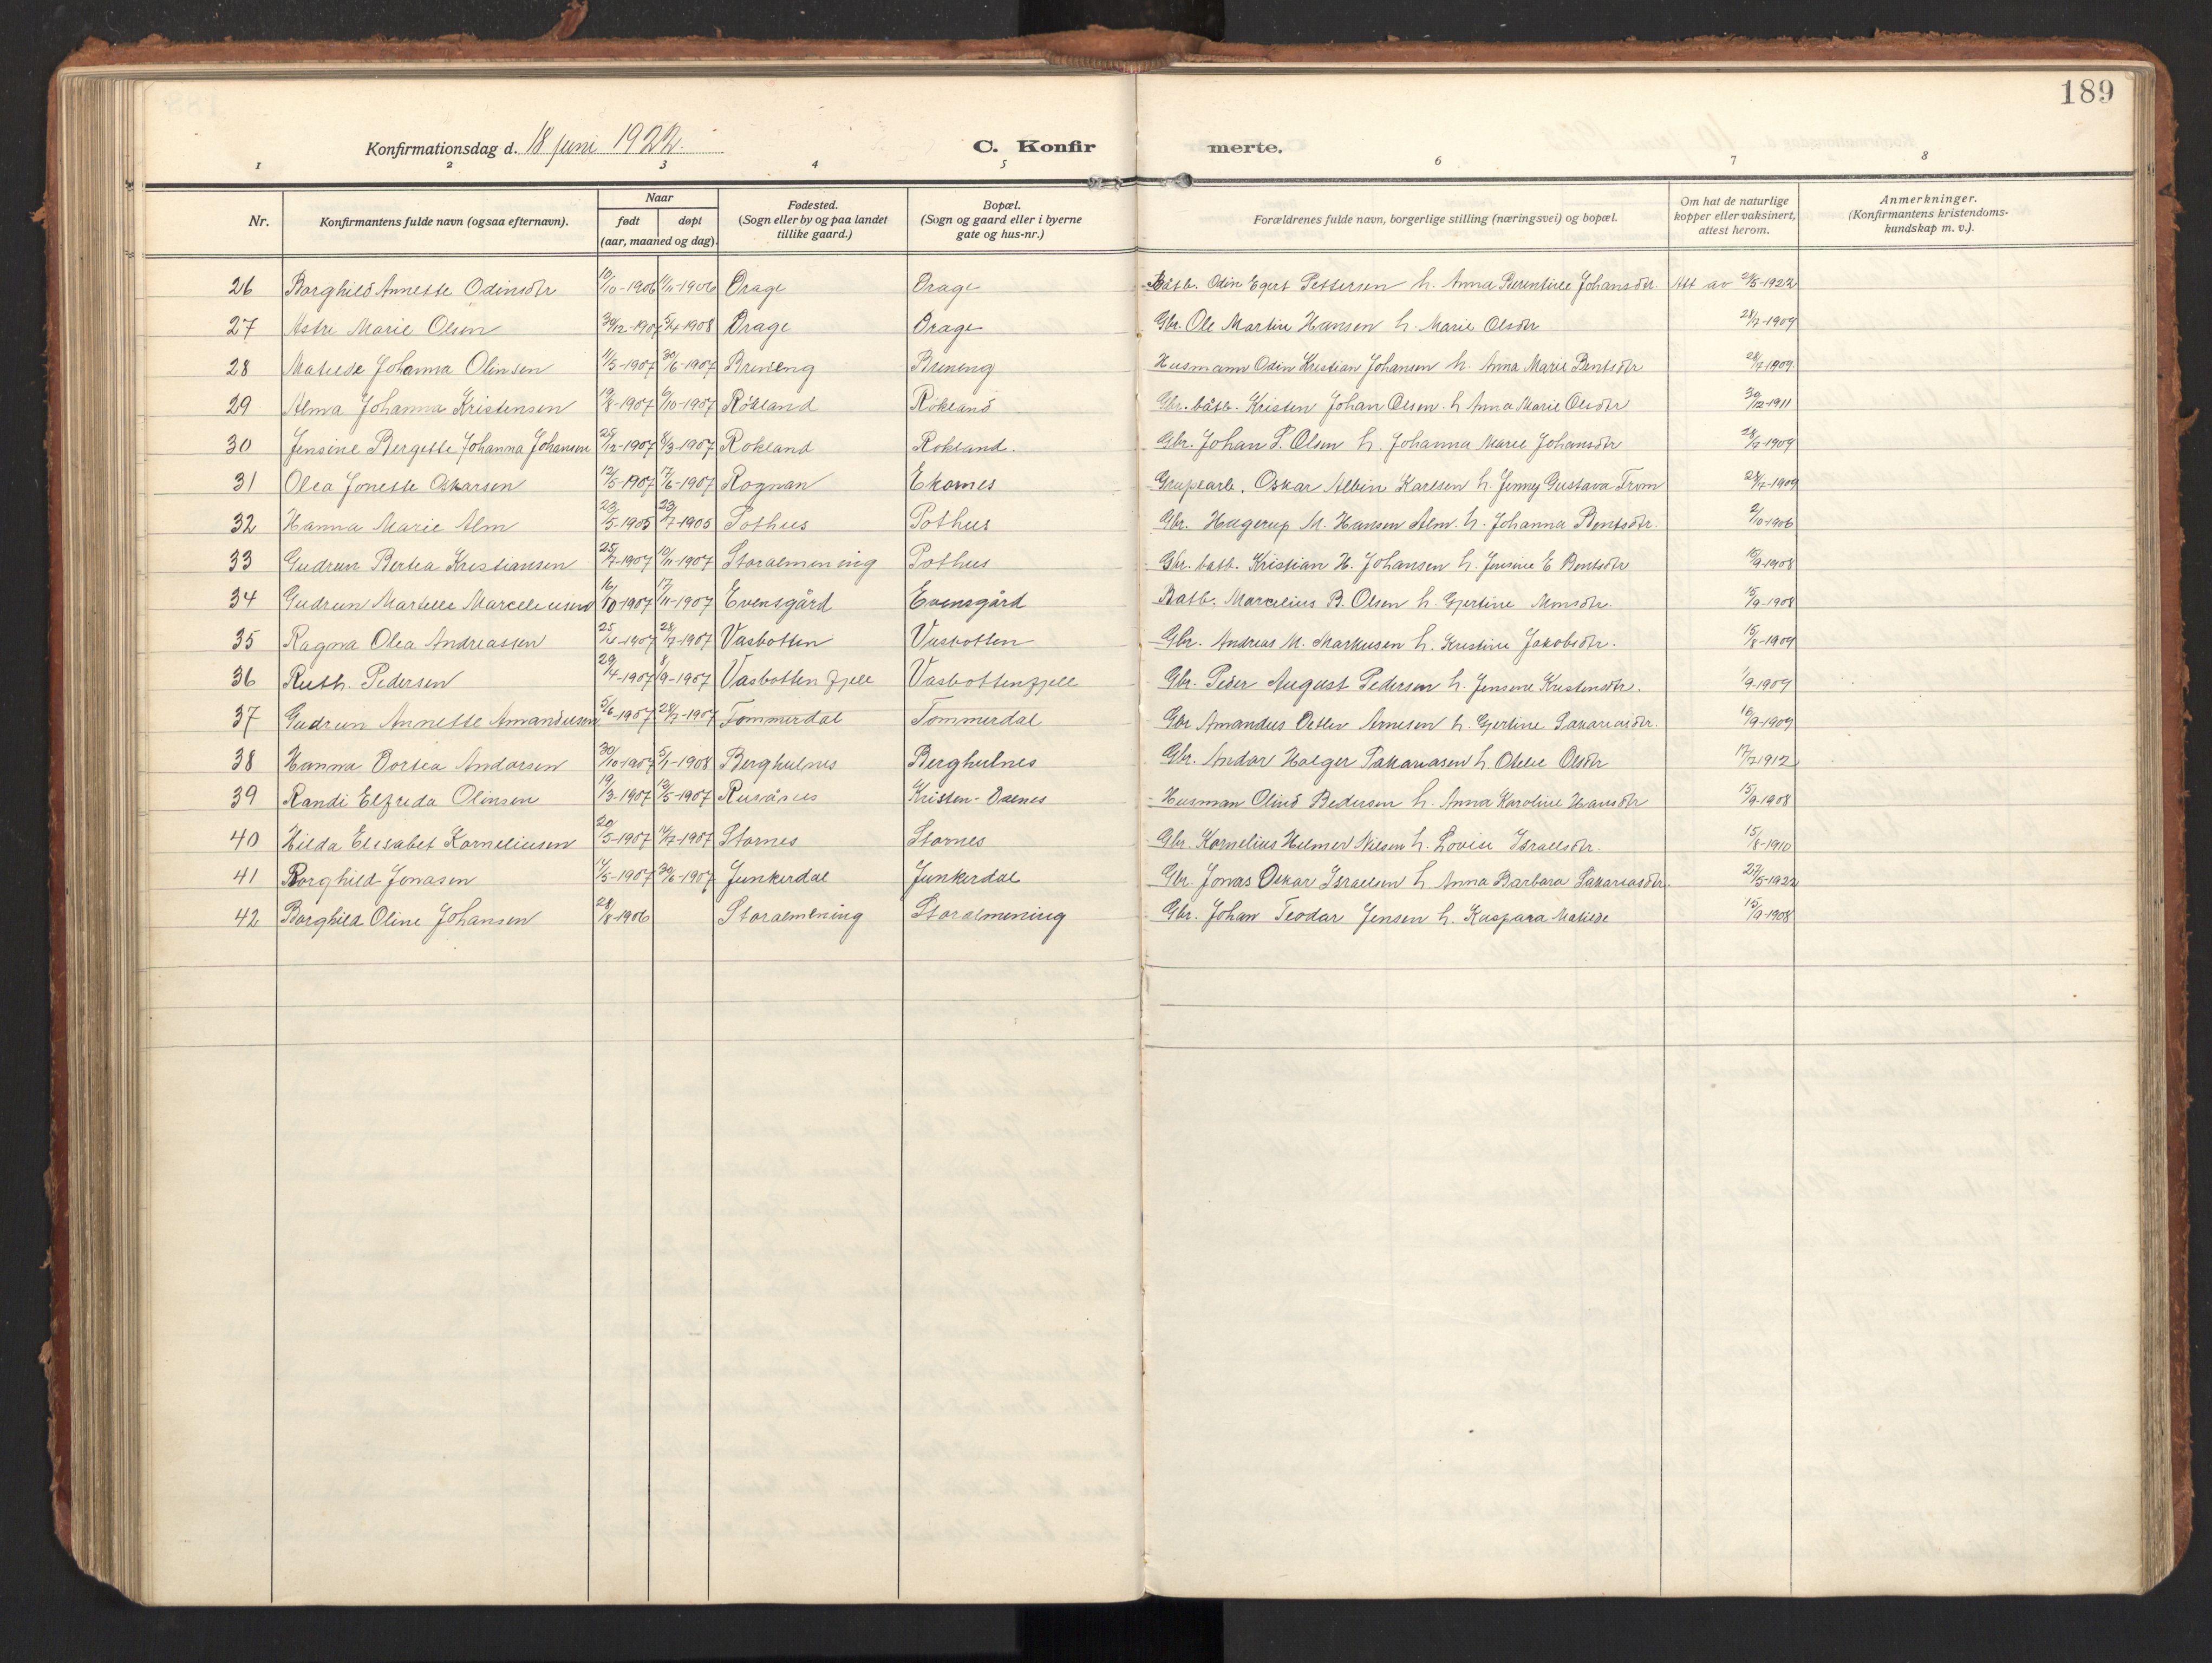 189
Konfirmationsdag d. 18 juni 1922.
C. Konfirmerte.
1 2 3 4 5 6 7 8
Nr. Konfirmantens fulde navn (ogsaa efternavn). Naar født døpt (aar, maaned og dag). Fødested. (Sogn eller by og paa landet tillike gaard.) Bopæl. (Sogn og gaard eller i byerne gate og hus-nr.) Forældrenes fulde navn, borgerlige stilling (næringsvei) og bopæl. Om hat de naturlige kopper eller vaksinert, attest herom. Anmerkninger. (Konfirmantens kristendoms-kundskap m. v.).
26 Borghild Annette Odinsdtr 10/10-1906 11/11-1906 Drage Drage Båtb. Odin Egert Pettersen h. Anna Berentine Johansdtr. Att av 29/5-1922
27 Astri Marie Olsen 30/12-1907 5/4-1908 Drage Drage Gbr. Ole Martin Hansen h. Marie Olsdtr 28/7-1909
28 Matilde Johanna Olinsen 11/5-1907 30/6-1907 Bruneng Bruneng Husmann Odin Kristian Johansen h. Anna Marie Bentsdtr 28/7-1909.
29 Alma Johanna Kristensen 19/8-1907 6/10-1907 Røkland Røkland Gbr. båtb. Kristen Johan Olsen h Anna Marie Olsdtr 30/12-1911
30 Jensine Bergette Johanna Johansen 25/12-1907 8/3-1907 Rokland Rokland. Gbr. Johan P. Olsen h. Johanna Marie Johansdtr 28/7-1909
31 Olea Jonette Oskarsen 12/5-1907 17/6-1907 Rognan Ekornes Grupearb. Oskar Albin Karlsen h. Jenny Gustava From 28/7-1909
32 Hanna Marie Alm 23/5-1905 23/7-1905 Pothus Pothus Gbr. Hagerup M. Hansen Alm. h. Johanna Bentsdtr. 2/10-1906
33 Gudrun Bertea Kristiansen 25/7-1907 10/11-1907 Storalmening Pothus Gbr. batb. Kristian H. Johansen h. Jensine E Bentsdtr 15/9-1908
34 Gudrun Martelle Marceliusen 16/10-1907 17/11-1907 Evensgård Evensgård Batb. Marcelius B. Olsen h. Gjertine Monsdtr. 15/9-1908
35 Ragna Olea Andreassen 25/4-1907 28/7-1907 Vasbotten Vasbotten Gbr. Andreas M. Markusen h. Kristine Jakobsdtr. 15/8-1909
36 Ruth Pedersen 29/4-1907 8/9-1907 Vasbottenfjell Vasbottenfjell Gbr. Peder August Pedersen h. Jensine Kristensdtr. 1/9-1909
37 Gudrun Annette Amandusen 5/6-1907 28/7-1907 Tommerdal Tommerdal Gbr Amandus Detlev Arnesen h. Gjertine Sakariasdtr. 16/9-1909
38 Hanna Dortea Andorsen 30/10-1907 5/1-1908 Berghulnes Berghulnes Gbr. Andor Holger Sakariasen h. Otelie Olsdtr 17/7 1912
39 Randi Elfrida Olinsen 19/3-1907 13/5-1907 Rusånes Kristen-Oxenes Husman Olind Pedersen h. Anna Karoline Hansdtr 15/9-1908
40 Hilda Elisabet Korneliusen 20/5-1907 14/7-1907 Stornes Stornes Gbr. Kornelius Helmer Nilsen h. Lovise Israelsdtr. 15/8-1910
41 Borghild Jonasen 11/5-1907 30/6-1907 Junkerdal Junkerdal Gbr. Jonas Oskar Israelsen h Anna Barbara Sakariasdtr. 27/5-1922
42 Borghild Oline Johansen 28/8-1906 Storalmening Storalmening Gbr. Johan Teodor Jensen h. Kaspara Matilde 15/9-1908